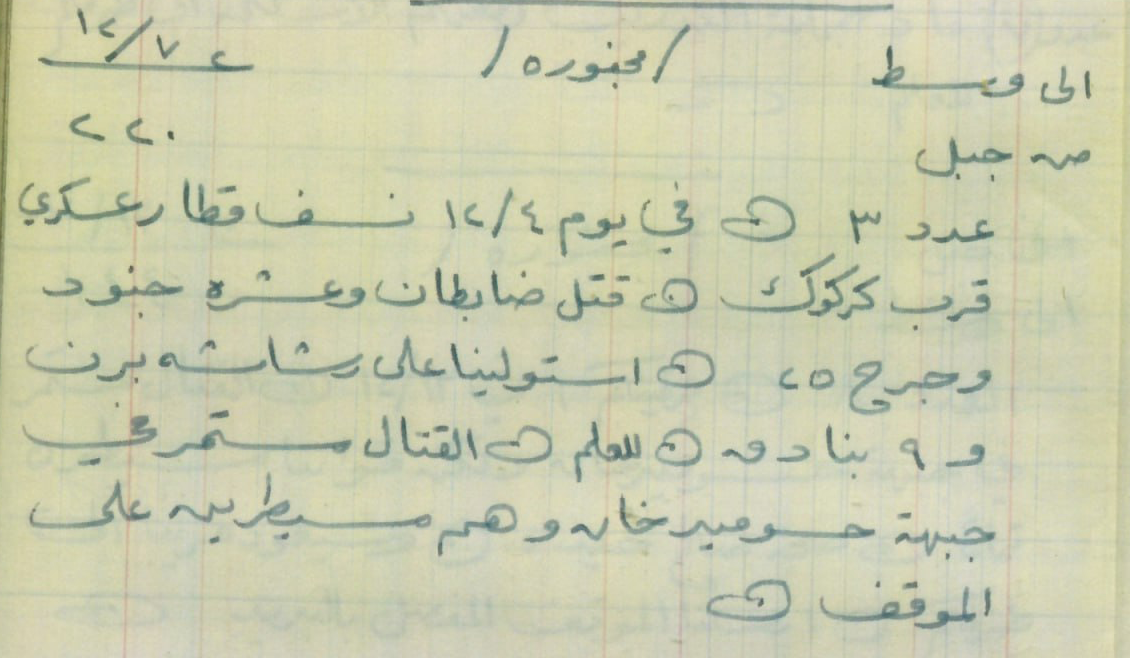 الى وسط /مخبوره/ ١٢/٧
من جبل ٢٢٠
عدد ٣ ن في يوم ١٢/٤ نسف قطار عسكري
قرب كركوك ن قتل ضابطان وعشره جنود
وجرح ٢٥ ن استولينا على رشاشه برن
و ٩ بنادق ن للعلم ن القتال مستمر في
جبهة حسوميرخان وهم مسيطرين على
الموقف ن